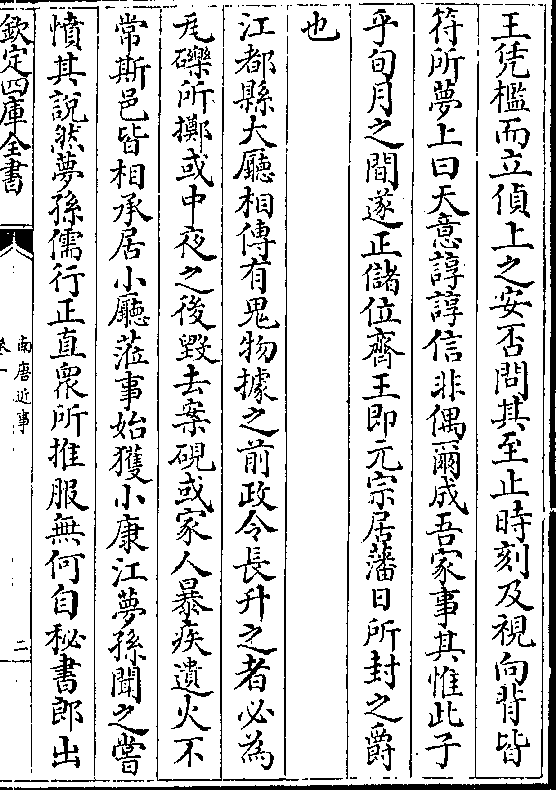 王凭檻而立偵上之安否問其至止時刻及視向背皆
符所夢上曰天意諄諄信非偶爾成吾家事其惟此子
乎旬月之間遂正儲位齊王即元宗居藩日所封之爵
也
江都縣大廳相傳有鬼物據之前政令長升之者必為
瓦礫所擲或中夜之後毀去案硯或家人暴疾遺火不
常斯邑皆相承居小廳蒞事始獲小康江夢孫聞之嘗
憤其說然夢孫儒行正直衆所推服無何自秘書郎出
欽定四庫全書
南唐近事
卷一
二